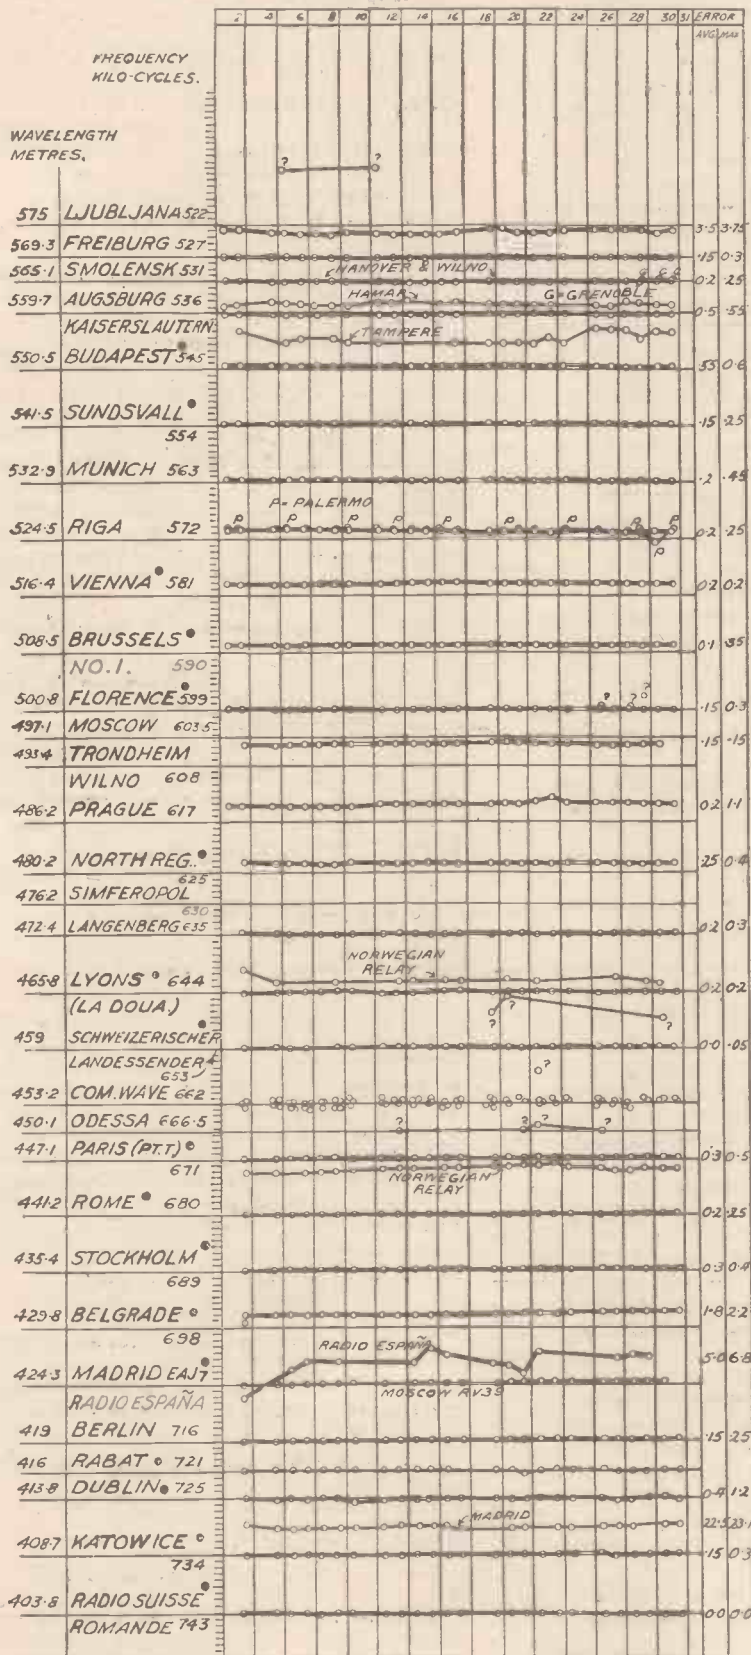 2 4 6 8 10 12 14 16 18 20 22 24 26 28 30 31 ERROR
AVG MAX
FREQUENCY
KILO-CYCLES.
WAVELENGTH
METRES.
? ?
575 LJUBLJANA 522 3.5 3.75
569.3 FREIBURG 527 .15 0.3
565.1 SMOLENSK 531 HANOVER & WILNO G G G 0.2 .25
559.7 AUGSBURG 536 HAMAR G=GRENOBLE 0.5 .55
KAISERSLAUTERN TAMPERE
550.5 BUDAPEST 545 .55 0.6
541.5 SUNDSVALL .15 .25
554
532.9 MUNICH 563 .2 .45
P=PALERMO
P P P P P P P P P
524.5 RIGA 572 0.2 .25
516.4 VIENNA 581 0.2 0.2
508.5 BRUSSELS 0.1 .35
NO.1. 590
500.8 FLORENCE 599 ? ? ? .15 0.3
497.1 MOSCOW 603.5
493.4 TRONDHEIM .15 .15
WILNO 608
486.2 PRAGUE 617 0.2 1.1
480.2 NORTH REG. .25 0.4
625
476.2 SIMFEROPOL
630
472.4 LANGENBERG 635 0.2 0.3
NORWEGIAN
RELAY
465.8 LYONS 644 0.2 0.2
(LA DOUA.) ? ? ?
459 SCHWEIZERISCHER 0.0 .05
LANDESSENDER ?
653
453.2 COM. WAVE 662
450.1 ODESSA 666.5 ? ? ? ?
447.1 PARIS (P.T.T) 0.3 0.5
671 NORWEGIAN
RELAY
441.2 ROME 680 0.2 .25
435.4 STOCKHOLM 0.3 0.4
689
429.8 BELGRADE 1.8 2.2
698
RADIO ESPAÑA
424.3 MADRID EAJ7 5.0 6.8
RADIO ESPAÑA MOSCOW RV39
419 BERLIN 716 .15 .25
416 RABAT 721
413.8 DUBLIN 725 0.4 1.2
MADRID 22.5 23.1
408.7 KATOWICE .15 0.3
734
403.8 RADIO SUISSE 0.0 0.0
ROMANDE 743